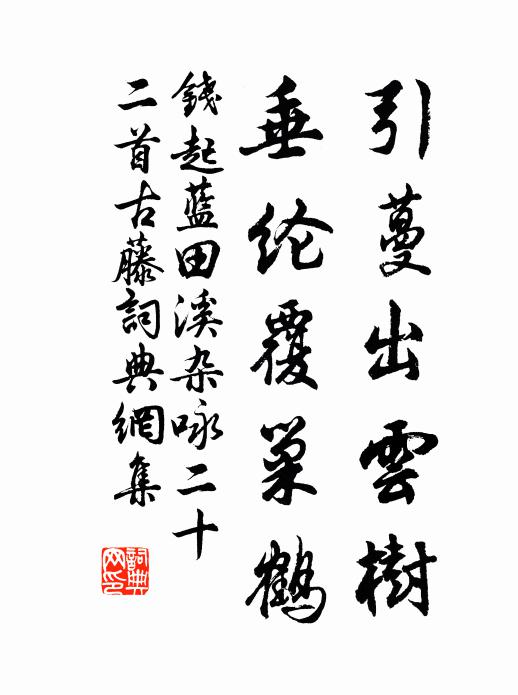 引蔓出雲樹
垂纶覆巢鶴
錢起藍田溪杂咏二十
二首古藤詞典網集
詞典网印